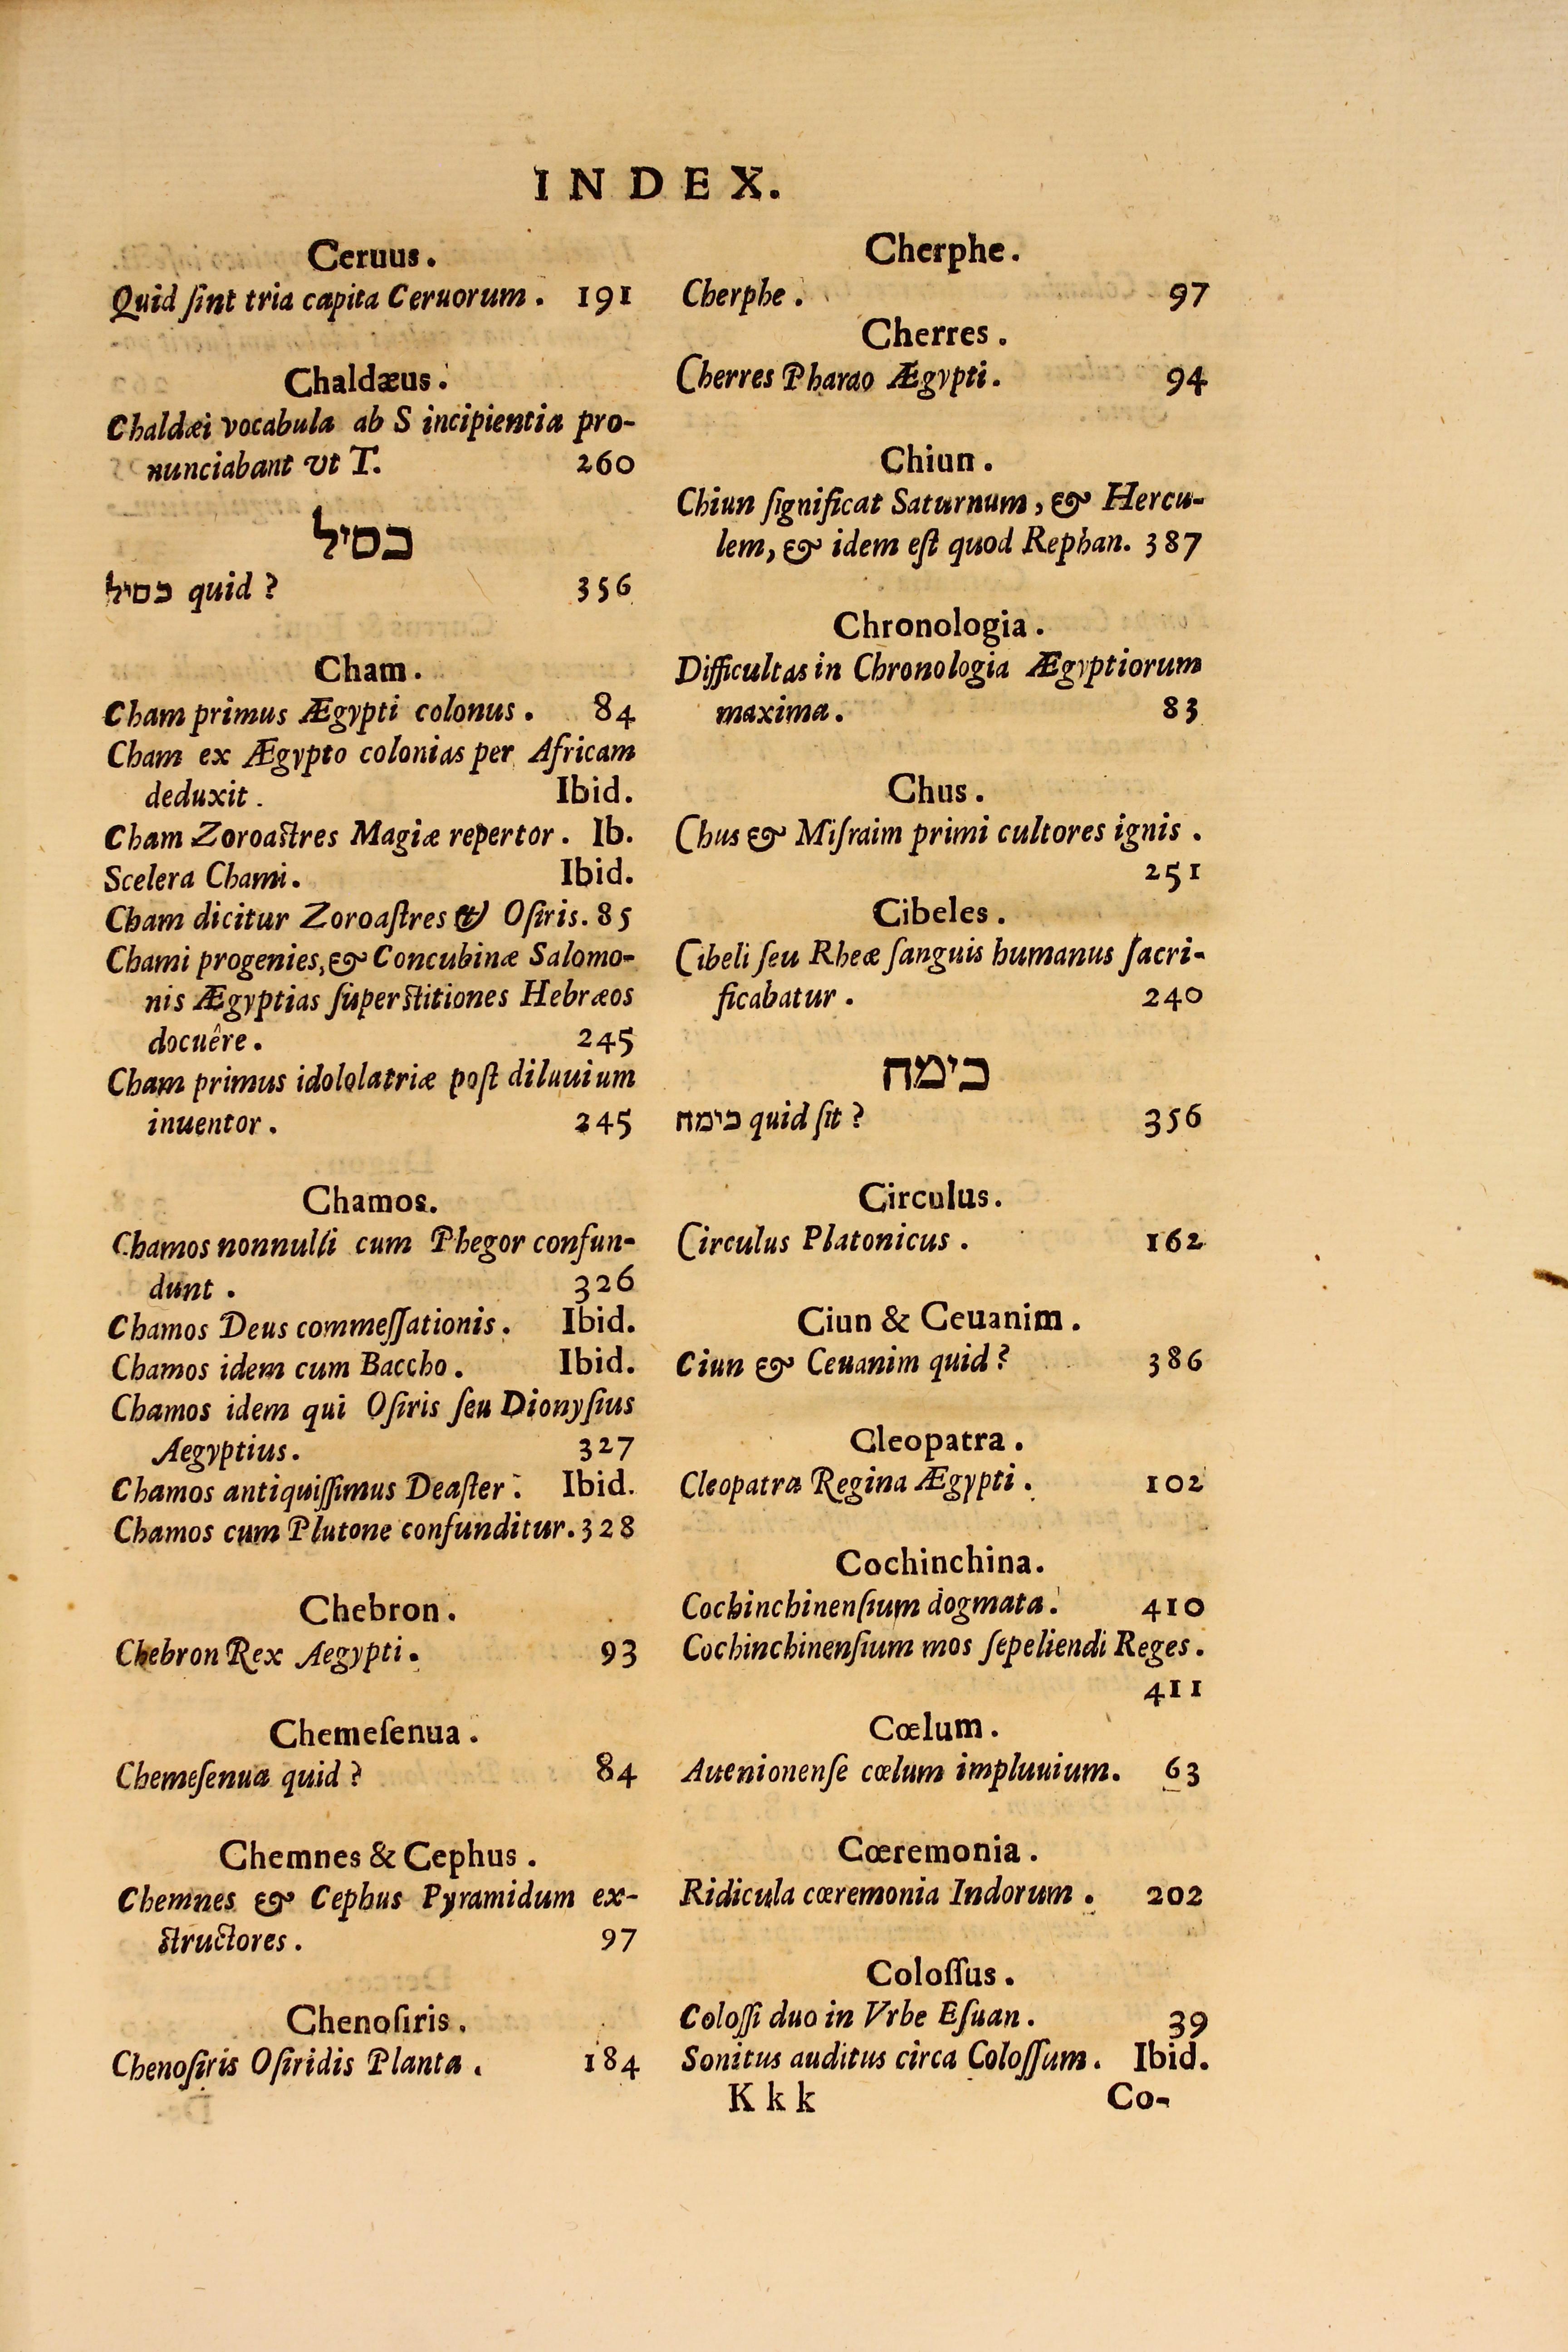 INDEX.
Ceruus.
Quid ſint tria capita Ceruorum. 191
Chaldæus.
Chaldæi vocabula ab S incipientia pro-
nunciabant vt T. 260
כסיל
כסיל quid? 356
Cham.
Cham primus Ægypti colonus. 84
Cham ex Ægypto colonias per Africam
deduxit. Ibid.
Cham Zoroaſtres Magiæ repertor. Ib.
Scelera Chami. Ibid.
Cham dicitur Zoroaſtres & Oſiris. 85
Chami progenies, & Concubinæ Salomo-
nis Ægyptias ſuperſtitiones Hebræos
docuêre. 245
Cham primus idololatriæ poſt diluuium
inuentor. 245
Chamos.
Chamos nonnulli cum Phegor confun-
dunt. 326
Chamos Deus commeſſationis. Ibid.
Chamos idem cum Baccho. Ibid.
Chamos idem qui Oſiris ſeu Dionyſius
Aegyptius. 327
Chamos antiquiſſimus Deaſter. Ibid.
Chamos cum Plutone confunditur. 328
Chebron.
Chebron Rex Aegypti. 93
Chemeſenua.
Chemeſenua quid? 84
Chemnes & Cephus.
Chemnes & Cephus Pyramidum ex-
ſtructores. 97
Chenoſiris.
Chenoſiris Oſiridis Planta. 184
Cherphe.
Cherphe. 97
Cherres.
Cherres Pharao Ægypti. 94
Chiun.
Chiun ſignificat Saturnum, & Hercu-
lem, & idem eſt quod Rephan. 387
Chronologia.
Difficultas in Chronologia Ægyptiorum
maxima. 83
Chus.
Chus & Miſraim primi cultores ignis.
251
Cibeles.
Cibeli ſeu Rheæ ſanguis humanus ſacri-
ficabatur. 240
כימח
כימח quid ſit? 356
Circulus.
Circulus Platonicus. 162
Ciun & Ceuanim.
Ciun & Ceuanim quid? 386
Cleopatra.
Cleopatra Regina Ægypti. 102
Cochinchina.
Cochinchinenſium dogmata. 410
Cochinchinenſium mos ſepeliendi Reges.
411
Cœlum.
Auenionenſe cœlum impluuium. 63
Cœremonia.
Ridicula cœremonia Indorum. 202
Coloſſus.
Coloſſi duo in Vrbe Eſuan. 39
Sonitus auditus circa Coloſſum. Ibid.
Kkk Co-